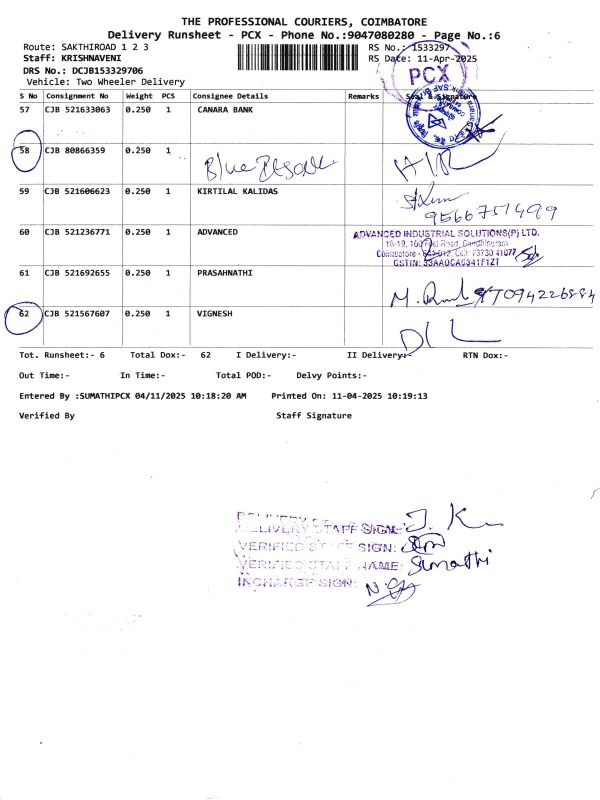 THE PROFESSIONAL COURIERS, COIMBATORE
Delivery Runsheet - PCX - Phone No.:9047080280 - Page No.:6
Route: SAKTHIROAD 1 2 3
RS No.: 1533297
Staff: KRISHNAVENI
RS Date: 11-Apr-2025
DRS No.: DCJB153329706
PCX
Vehicle: Two Wheeler Delivery
S No Consignment No Weight PCS Consignee Details Remarks Seal & Signature
57 CJB 521633063 0.250 1 CANARA BANK
58 CJB 80866359 0.250 1
59 CJB 521606623 0.250 1 KIRTILAL KALIDAS
9566751499
60 CJB 521236771 0.250 1 ADVANCED
ADVANCED INDUSTRIAL SOLUTIONS(P) LTD.
61 CJB 521692655 0.250 1 PRASHNATHI
62 CJB 521567607 0.250 1 VIGNESH
D/L
Tot. Runsheet:- 6 Total Dox:- 62 I Delivery:- II Delivery:- RTN Dox:-
Out Time:- In Time:- Total POD:- Delvy Points:-
Entered By :SUMATHIPCX 04/11/2025 10:18:20 AM Printed On: 11-04-2025 10:19:13
Verified By Staff Signature
DELIVERY STAFF SIGN:
VERIFIED STAFF SIGN:
VERIFIED STAFF NAME: Sumathi
INCHARGE SIGN: